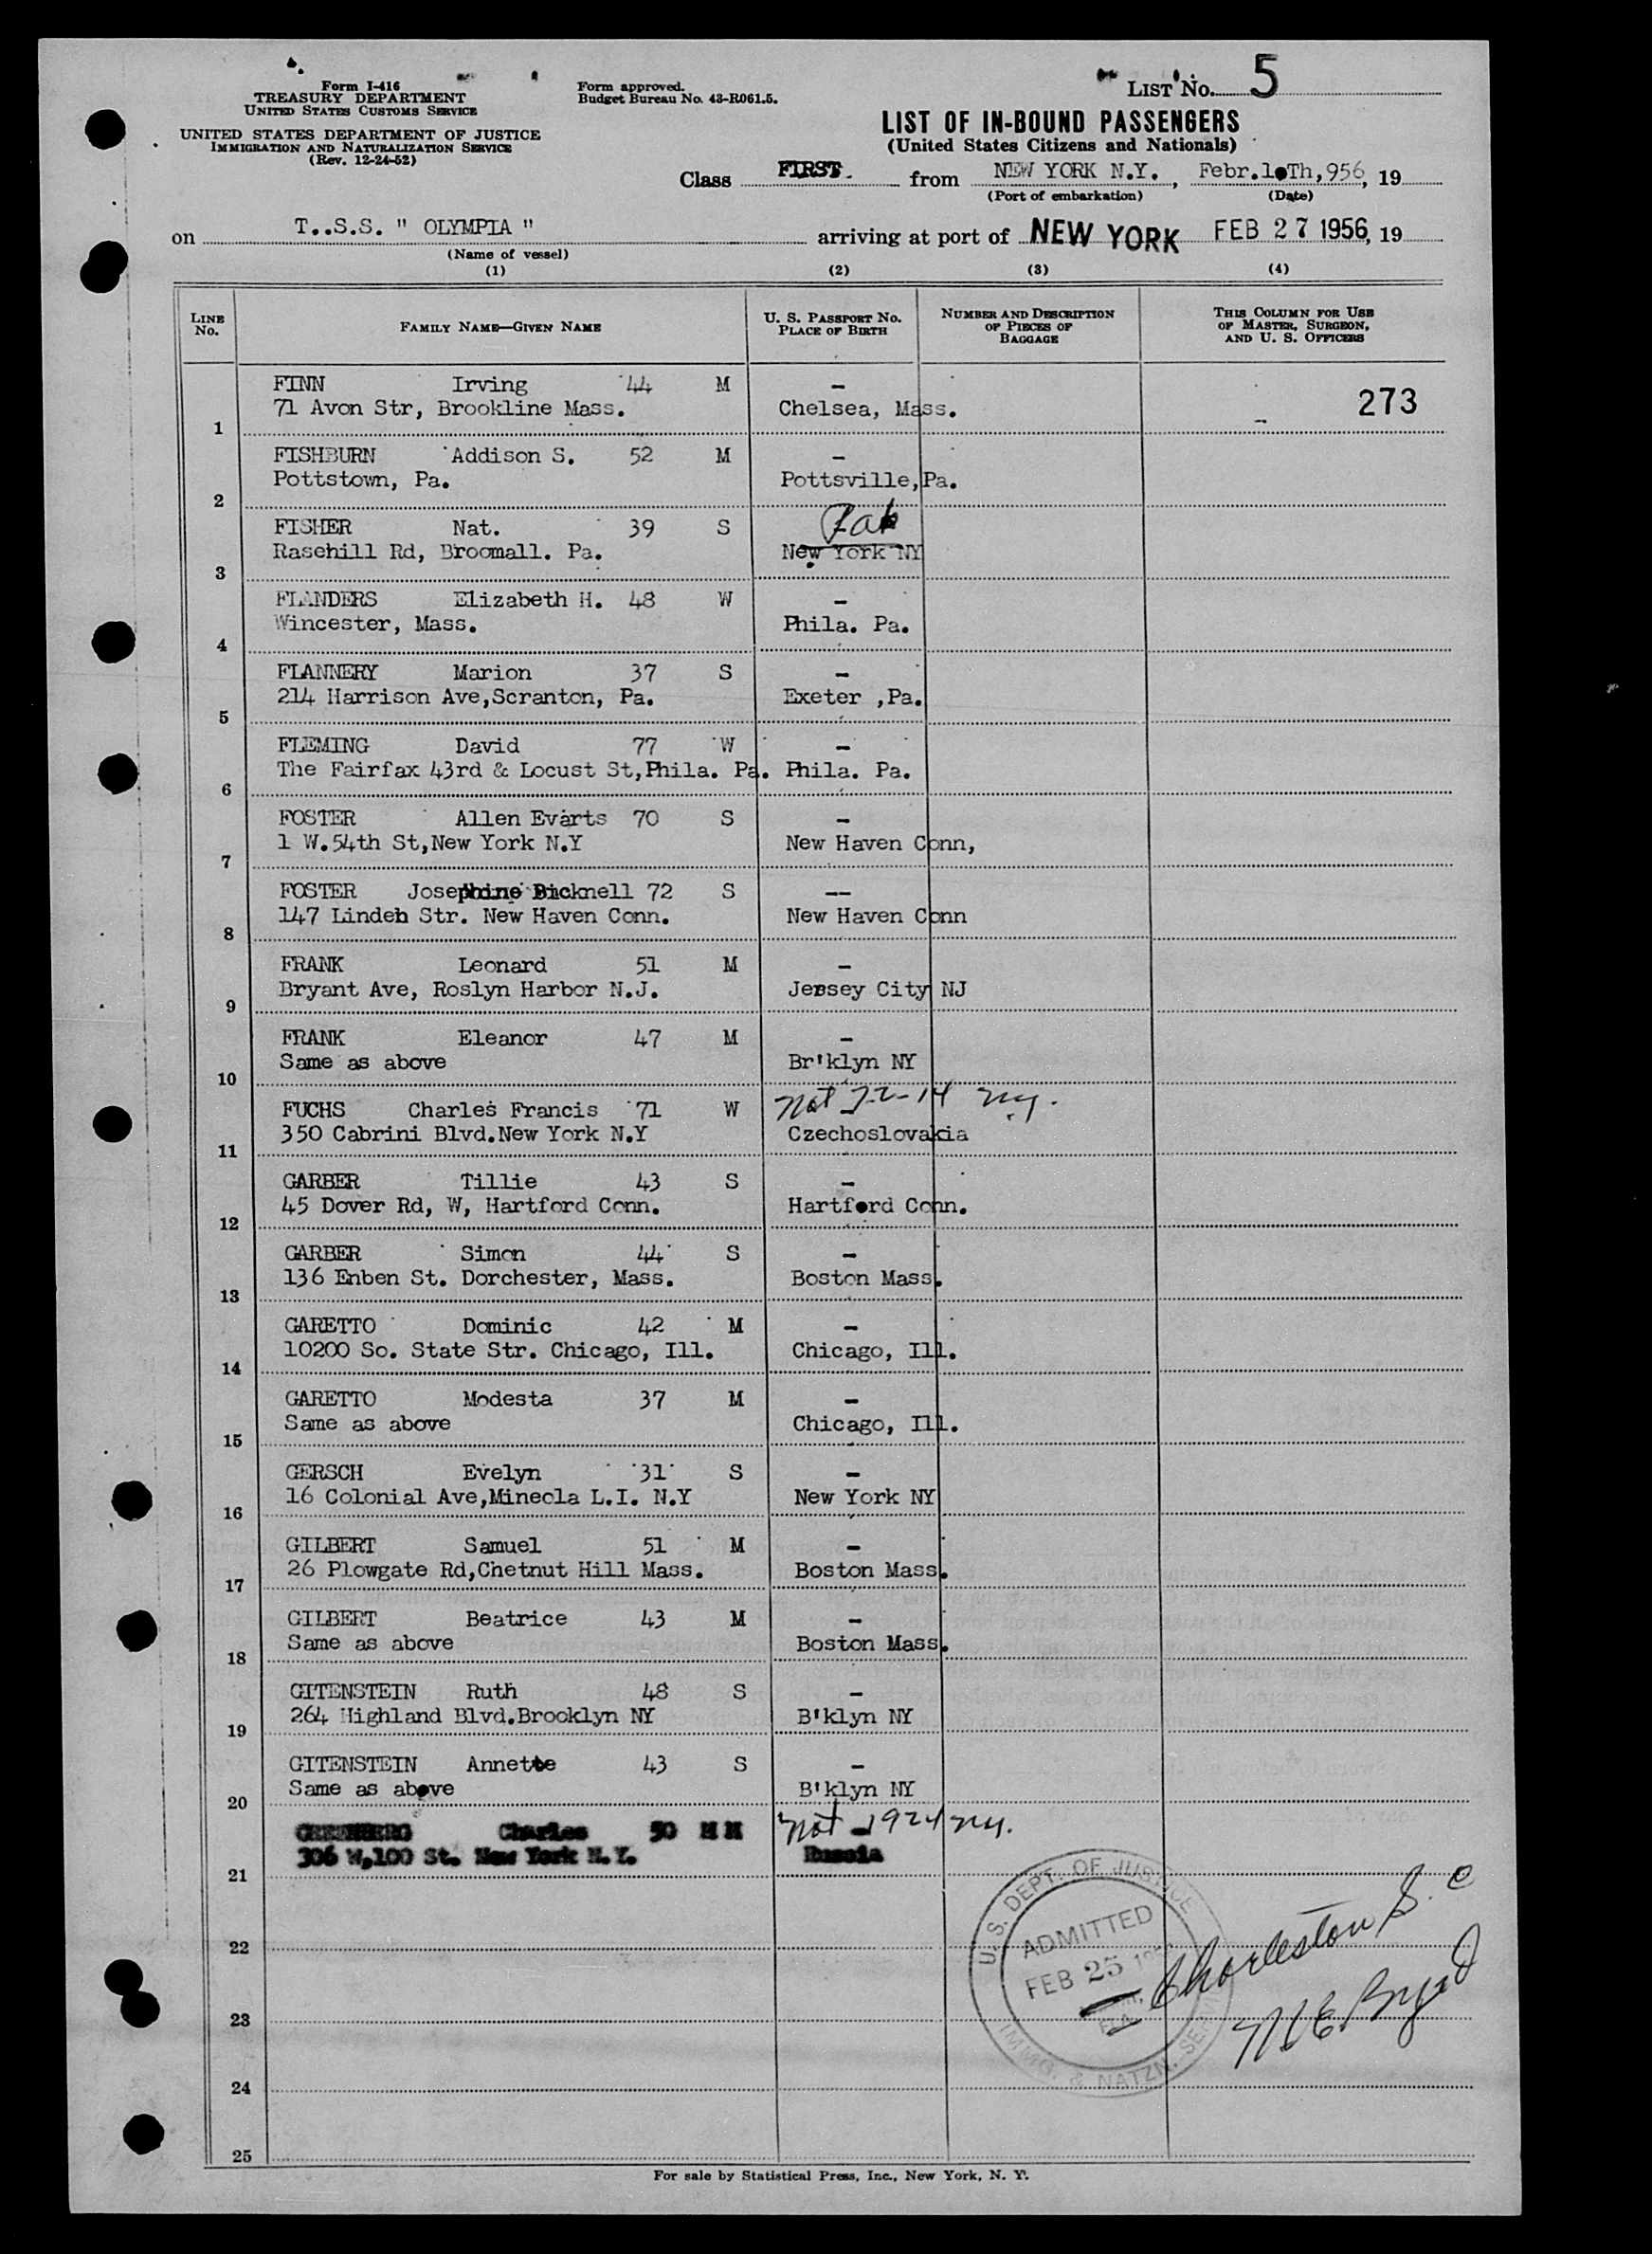 Form I-416
TREASURY DEPARTMENT
UNITED STATES CUSTOMS SERVICE
UNITED STATES DEPARTMENT OF JUSTICE
IMMIGRATION AND NATURALIZATION SERVICE
(Rev. 12-24-52)
Form approved.
Budget Bureau No. 43-R061.5.
LIST No. 5
LIST OF IN-BOUND PASSENGERS
(United States Citizens and Nationals)
Class FIRST. from NEW YORK N.Y. , Febr.10Th,956, 19
(Port of embarkation) (Date)
on T..S.S. " OLYMPIA " arriving at port of NEW YORK FEB 27 1956, 19
(Name of vessel)
(1) (2) (3) (4)
LINE No. FAMILY NAME—GIVEN NAME U. S. PASSPORT No. PLACE OF BIRTH NUMBER AND DESCRIPTION OF PIECES OF BAGGAGE THIS COLUMN FOR USE OF MASTER, SURGEON, AND U. S. OFFICERS
FINN Irving 44 M – 273
71 Avon Str, Brookline Mass. Chelsea, Mass. –
1
FISHBURN Addison S. 52 M –
Pottstown, Pa. Pottsville,Pa.
2
FISHER Nat. 39 S
Rasehill Rd, Broomall. Pa. New York NY
3
FLANDERS Elizabeth H. 48 W –
Wincester, Mass. Phila. Pa.
4
FLANNERY Marion 37 S –
214 Harrison Ave,Scranton, Pa. Exeter ,Pa.
5
FLEMING David 77 W –
The Fairfax 43rd & Locust St,Phila. Pa. Phila. Pa.
6
FOSTER Allen Evarts 70 S –
1 W.54th St,New York N.Y New Haven Conn,
7
FOSTER Josephine Bicknell 72 S --
147 Linden Str. New Haven Conn. New Haven Conn
8
FRANK Leonard 51 M –
Bryant Ave, Roslyn Harbor N.J. Jersey City NJ
9
FRANK Eleanor 47 M –
Same as above Br'klyn NY
10
FUCHS Charles Francis 71 W Nat 7-2-14 NY.
350 Cabrini Blvd.New York N.Y Czechoslovakia
11
GARBER Tillie 43 S –
45 Dover Rd, W, Hartford Conn. Hartford Conn.
12
GARBER Simon 44 S –
136 Enben St. Dorchester, Mass. Boston Mass.
13
GARETTO Dominic 42 M –
10200 So. State Str. Chicago, Ill. Chicago, Ill.
14
GARETTO Modesta 37 M –
Same as above Chicago, Ill.
15
GERSCH Evelyn 31 S –
16 Colonial Ave,Mineola L.I. N.Y New York NY
16
GILBERT Samuel 51 M –
26 Plowgate Rd,Chetnut Hill Mass. Boston Mass.
17
GILBERT Beatrice 43 M –
Same as above Boston Mass.
18
GITENSTEIN Ruth 48 S –
264 Highland Blvd.Brooklyn NY B'klyn NY
19
GITENSTEIN Annette 43 S –
Same as above B'klyn NY
20
GREENBERG Charles 50 M M Nat – 1924 NY.
306 W,100 St. New York N.Y. Russia
21
22
23
24
25
U.S. DEPT. OF JUSTICE
ADMITTED
FEB 25
IMMG. & NATZN. SERV.
Charleston S. C
For sale by Statistical Press, Inc., New York, N. Y.